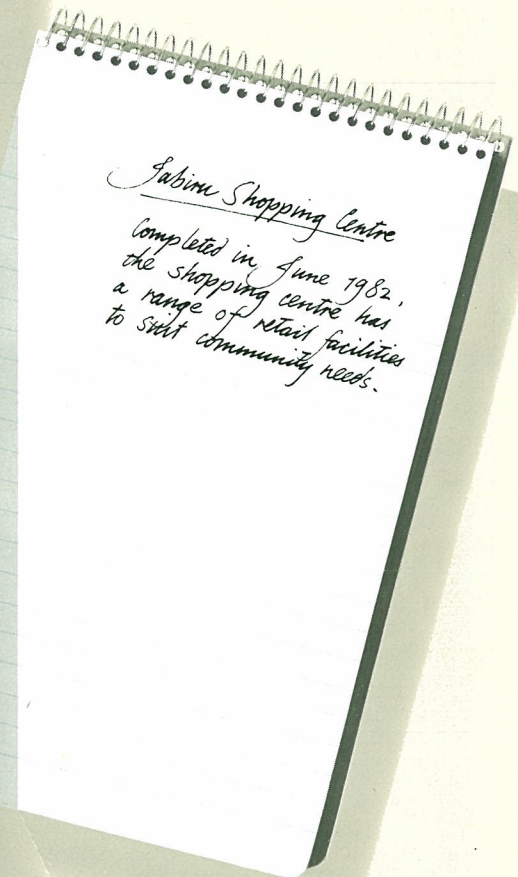 Jabiru Shopping Centre
Completed in June 1982,
the shopping centre has
a range of retail facilities
to suit community needs.